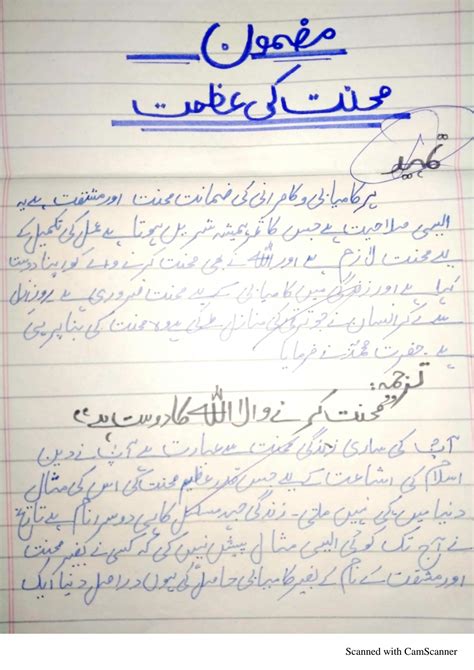 مضمون
محنت کی عظمت
تمہید
ہر کامیابی و کامرانی کی ضمانت محنت اور مشقت ہے یہ
ایسی صلاحیت ہے جس کا ثمر ہمیشہ شریں ہوتا ہے عمل کی تکمیل کے
لیے محنت لازم ہے اور اللہ نے بھی محنت کرنے والے کو اپنا دوست
کہا ہے اور زندگی میں کامیابی کے لیے محنت ضروری ہے روز ازل
سے لے کر انسان نے جو ترقی کی منازل طے کی ہیں وہ محنت کی بنا پر ہی
ہے۔ حضرت محمدؐ نے فرمایا
ترجمہ:
"محنت کرنے والا اللہ کا دوست ہے"
آپؐ کی ساری زندگی محنت سے عبارت ہے آپؐ نے دین
اسلام کی اشاعت کے لیے جس قدر عظیم محنت کی اس کی مثال
دنیا میں کہی نہیں ملتی۔ زندگی جہد مسلسل کا ہی دوسرا نام ہے تاریخ
نے آج تک کوئی ایسی مثال پیش نہیں کی کہ کسی نے بغیر محنت
اور مشقت کے نام کے بغیر کامیابی حاصل کی ہوں دراصل دنیا ایک
Scanned with CamScanner